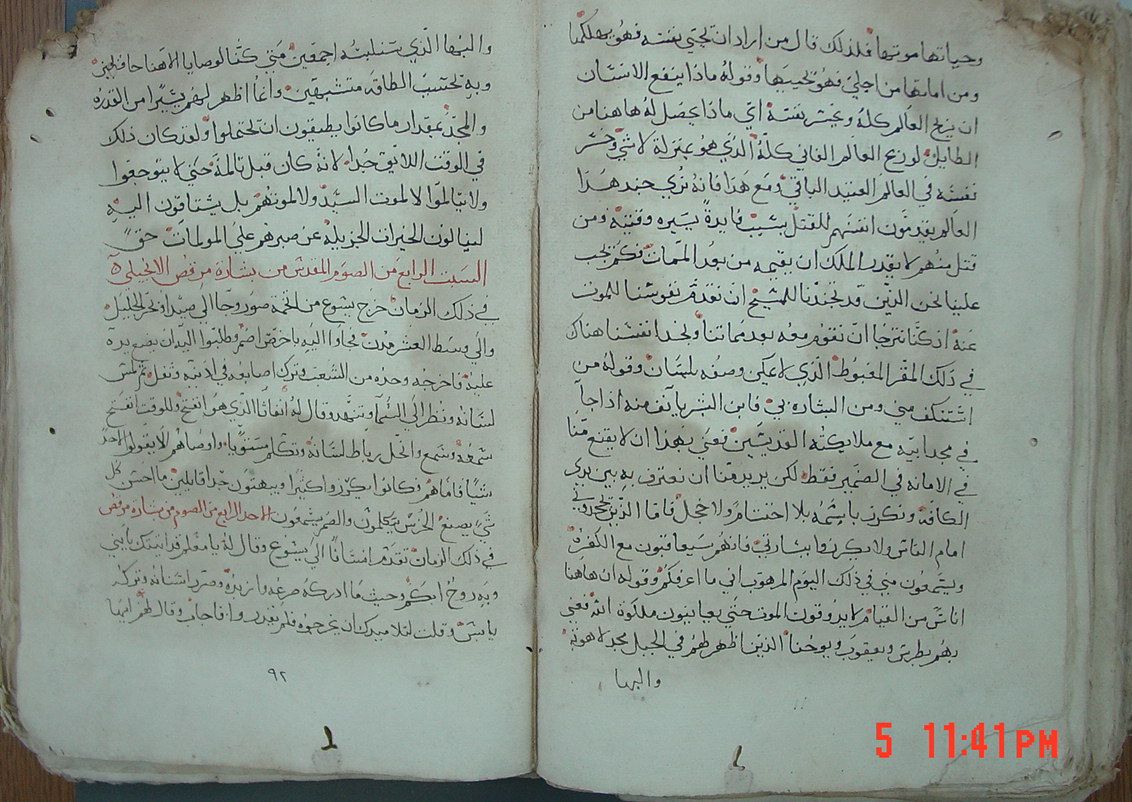 وحياتها موتها فلذلك قال من اراد ان يحيي نفسه فهو يهلكها
ومن اماتها من اجلي فهو يحييها وقوله ماذا ينفع الانسان
ان يربح العالم كله ويخسر نفسه اي ماذا يحصل له هاهنا من
الطايل لو ربح العالم الفاني كله الذي هو بمنزلة لا شي وخسر
نفسه في العالم العتيد الباقي ومع هذا فانه نري جند هذا
العالم يقدمون انفسهم للقتل بسبب فايدة يسيره وقتيه ومن
قتل منهم لا يقدر الملك ان يقيمه من بعد الممات فكم يجب
علينا نحن الذين قد تجندنا للمسيح ان نقدم نفوسنا للموت
عنه اذ كنا نترجا ان نقوم معه بعد مماتنا ونجد انفسنا هناك
في ذلك المقر المغبوط الذي لا يمكن وصفه بلسان وقوله من
استنكف مني ومن البشاره بي فابن البشر يانف منه اذا جا
في مجد ابيه مع ملايكته القديسين فعني بهذا ان لا يقنع منا
في الامانه في الضمير فقط لكن يريد منا ان نعترف به بين يدي
الكافه ونكرز باسمه بلا احتشام ولا خجل فاما الذين يجحدوني
امام الناس ولا يكرزوا بشارتي فانهم سيعاقبون مع الكفرة
ويسمعون مني في ذلك اليوم المرهوب اني ما اعرفكم وقوله ان هاهنا
اناس من القيام لا يذوقون الموت حتي يعاينون ملكوة الله فعني
بهم بطرس ويعقوب ويوحنا الذين اظهر لهم في الجبل مجد لاهوته
والبها
والبها الذي سنلبسه اجمعين متي كنا لوصايا الاهنا حافظين
وبه بحسب الطاقه متشبهين وانما اظهر لهم يسيرا من القدره
والمجد بمقدار ما كانوا يطيقون ان يحتملوا ولقد كان ذلك
في الوقت اللايق جدا لانه كان قبل تالمه حتي لا يتوجعوا
ولا يتالموا لا لموت السيد ولا لموتهم بل يشتاقون اليه
لينالون الخيرات الجزيله عن صبرهم علي المولمات حق
السبت الرابع من الصوم المقدس من بشارة مرقص الانجيلي
في ذلك الزمان خرج يسوع من تخم صور وجا الي صيدا وبحر الجليل
والي وسط العشر مدن فجاوا اليه باخرس اصم وطلبوا اليه ان يضع يده
عليه فاخرجه وحده من الشعب وترك اصابعه في اذنيه وتفل ثم لمس
لسانه ونظر الي السما وتنهد وقال له افاتا الذي هو انفتح وللوقت انفتح
سمعه وسمع وانحل رباط لسانه وتكلم مستويا واوصاهم الا يقولوا لاحد
شيا فاما هم فكانوا يكرزوا كثيرا ويبهتون جدا قايلين ما احسن كل
شي يصنع الخرس يتكلمون والصم يسمعون الاحد الرابع من الصوم من بشارة مرقص
في ذلك الزمان تقدم انسانا الي يسوع وقال له يا معلم قد اتيتك بابني
وبه روح ابكم وحيث ما ادركه صرعه وازبده وصرر اسنانه وتركه
يابس وقلت لتلاميدك ان يخرجوه فلم يقدروا فاجاب وقال لهم ايها
٩٢
5 11:41PM